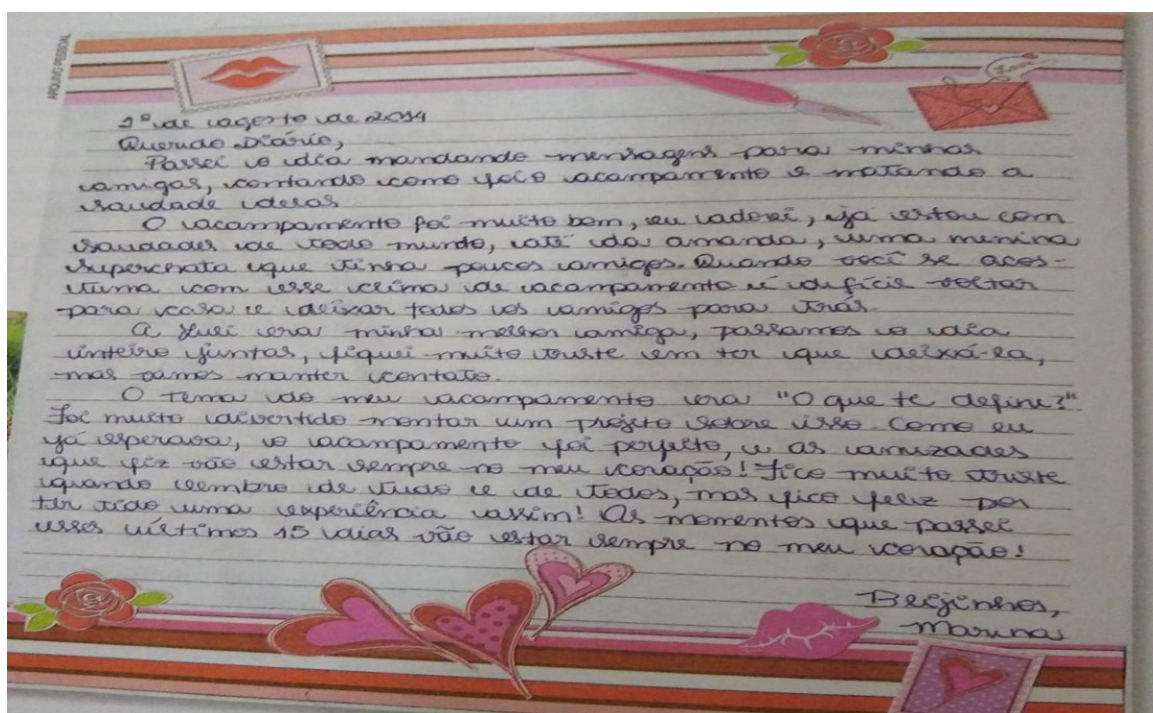 ARQUIVO PESSOAL
1º de agosto de 2014
Querido Diário,
Passei o dia mandando mensagens para minhas
amigas, contando como foi o acampamento e matando a
saudade delas.
O acampamento foi muito bom, eu adorei, já estou com
saudades de todo mundo, até da amanda, uma menina
superchata que tinha poucos amigos. Quando você se acos-
tuma com esse clima de acampamento é difícil voltar
para casa e deixar todos os amigos para trás.
A Susi era minha melhor amiga, passamos o dia
inteiro juntas, fiquei muito triste em ter que deixá-la,
mas vamos manter contato.
O tema do meu acampamento era "O que te define?".
Foi muito divertido montar um projeto sobre isso. Como eu
já esperava, o acampamento foi perfeito, e as amizades
que fiz vão estar sempre no meu coração! Fico muito triste
quando lembro de tudo e de todos, mas fico feliz por
ter tido uma experiência assim! Os momentos que passei
esses últimos 15 dias vão estar sempre no meu coração!
Beijinhos,
Marina